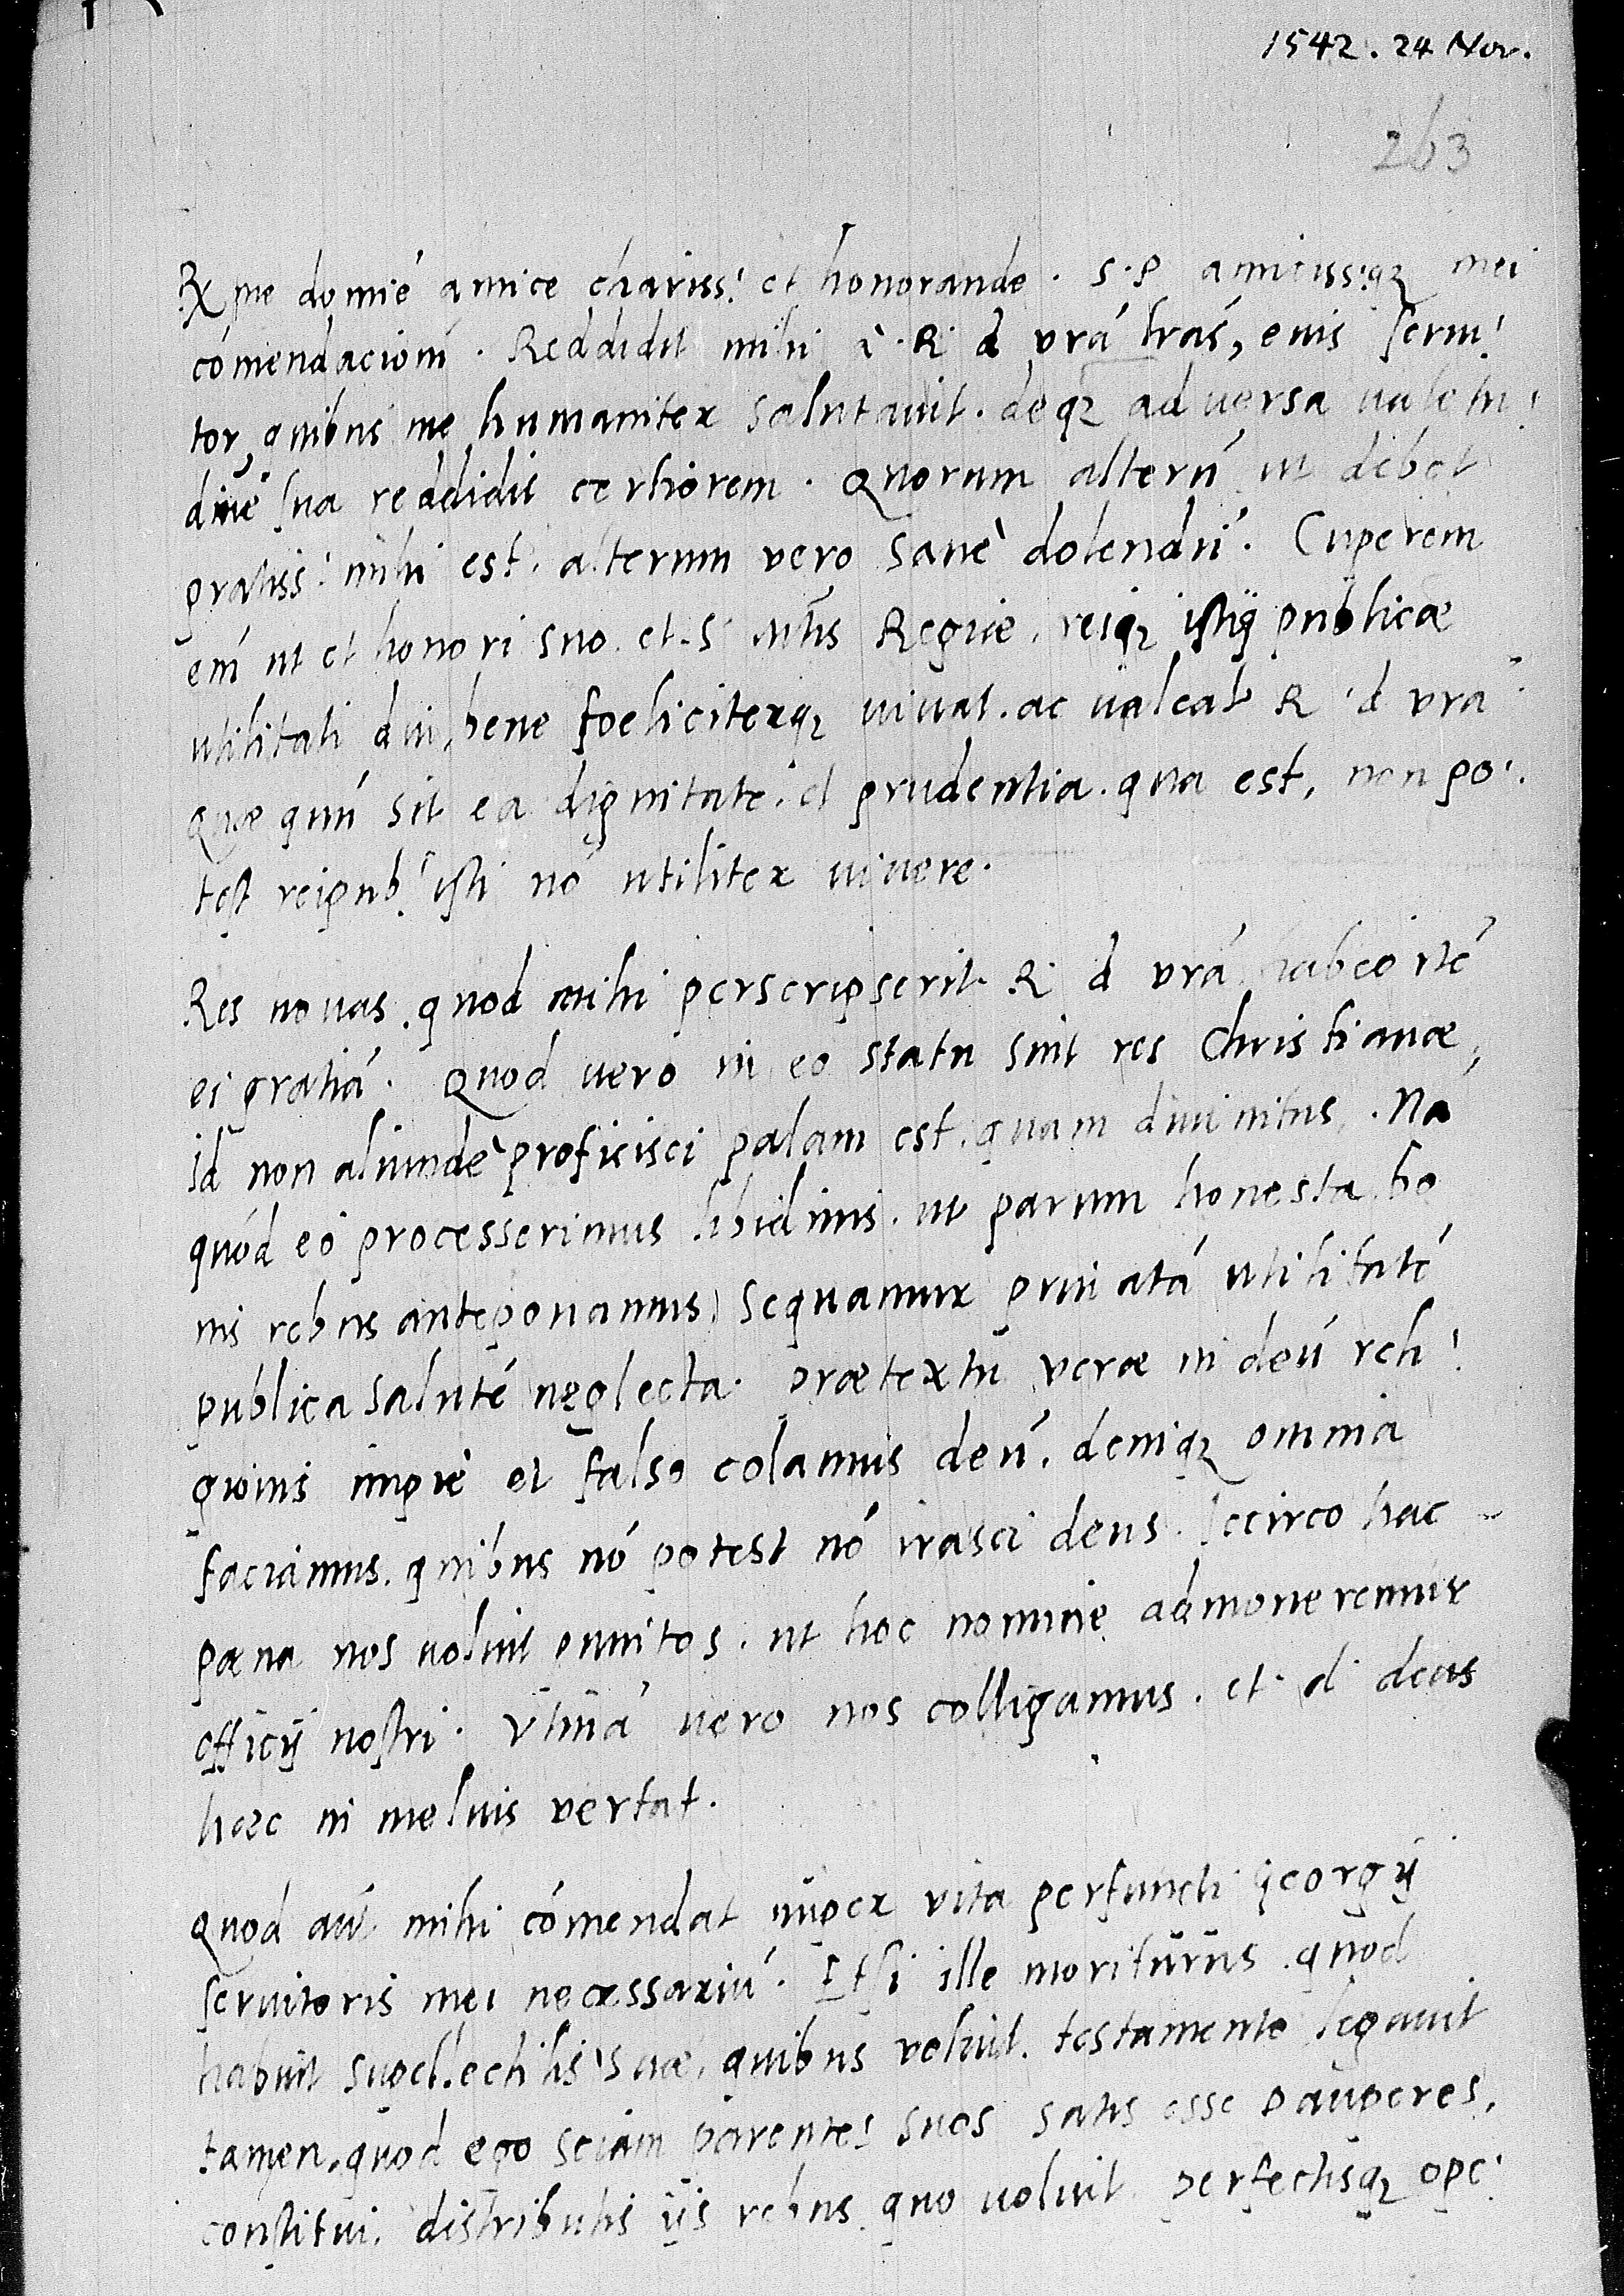 1542. 24 Nov.
263
Rx͞me domiē amice chariss: et honorande. S. P amicissi͞qz mei
cōmendacionē. Reddidit mihi à R d vrā lr̄as, eius serui:
tor, quibus me humaniter salutauit. deqz aduersa ualetu:
dinē sua reddidit certiorem. Quorum alterū ut debet
gratiss: mihi est. alterum vero sanè dolendū. Cuperem
em̄ ut et honori suo et S Mtis Regiæ, reiqz istiq publicæ
utilitati diu, bene foeliciterqz uiuat. ac ualeat R d vrā
quæ quū sit ea dignitate. et prudentia. qua est, non po:
test reipub: isti nō utiliter uiuere.
Res nouas. quod mihi perscripserit R d vrā habeo itē
ei gratiā. Quod uero in eo statu sint res Christianæ,
id non aliundè proficisci palam est. quam diuinitus. Nā
quòd eò processerimus libidinis. ut parum honesta bo
nis rebus anteponamus, sequamur priuatā utilitatē
publica salutē neglecta. prætextu veræ in deū reli:
gionis impiè et falso colamus deū. deniqz omnia
faciamus. quibus nō potest nō irasci deus. Iccirco hac
pœna nos uoluit punitos. ut hoc nomine admoneremur
officij nostri. Vtinā uero nos colligamus. et d deus
hæc in melius vertat.
Quod aūt mihi cōmendat nuper vita perfuncti georgij
seruitoris mei necessariū. Etsi ille moriturus quod
habuit supellectilis suæ, quibus voluit. testamento legauit
tamen, quod ego sciam parentes suos satis esse pauperes,
constitui. distributis ijs rebus quo uoluit perfectisqz ope: